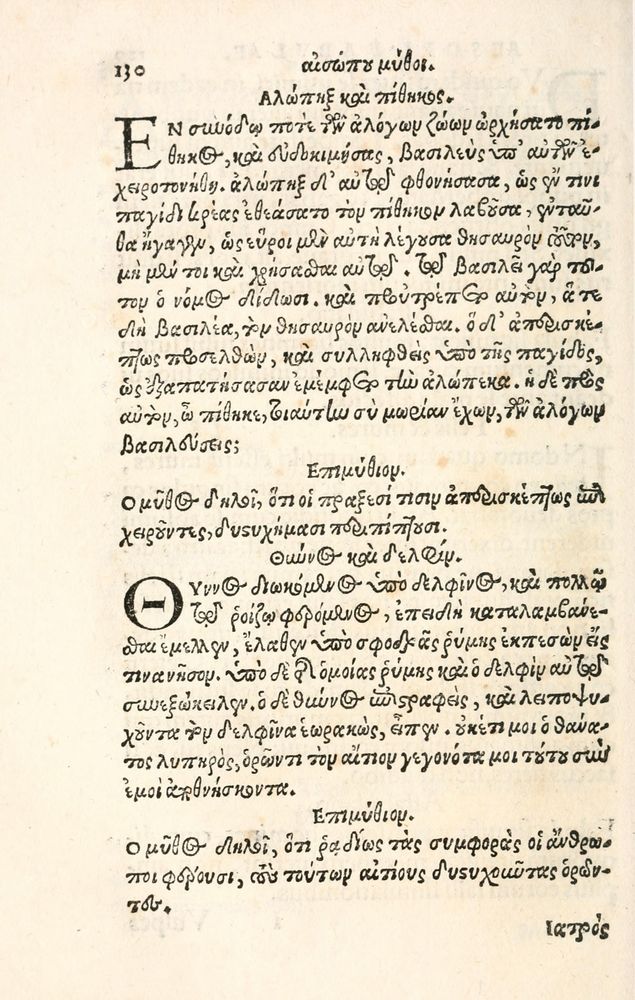 130 αἰσώπου μῦθοι.
Ἀλώπηξ καὶ πίθηκος.
ΕΝ συνόδῳ ποτὲ τῶν ἀλόγων ζώων ὠρχήσατο πί-
θηκος, καὶ εὐδοκιμήσας, βασιλεὺς ὑπ' αὐτῶν ἐ-
χειροτονήθη. ἀλώπηξ δ' αὐτῷ φθονήσασα, ὡς ἔν τινι
παγίδι κρέας ἐθεάσατο τὸν πίθηκον λαβοῦσα, ἐνταῦ-
θα ἤγαγεν, ὡς εὕροι μὲν αὐτὴ λέγουσα θησαυρὸν τοῦτον,
μὴ μέν τοι καὶ χρήσασθαι αὐτῷ. τῷ βασιλεῖ γὰρ τοῦ-
τον ὁ νόμος δίδωσι. καὶ προὔτρεπεν αὐτὸν, ἅ τε
δὴ βασιλέα, τὸν θησαυρὸν ἀνελέσθαι. ὁ δ' ἀπερισκέ-
πτως προσελθὼν, καὶ συλληφθεὶς ὑπὸ τῆς παγίδος,
ὡς ἐξαπατήσασαν ἐμέμφετο τὴν ἀλώπεκα. ἡ δὲ πρὸς
αὐτὸν, ὦ πίθηκε, τοιαύτην σὺ μωρίαν ἔχων, τῶν ἀλόγων
βασιλεύσεις;
Ἐπιμύθιον.
Ὁ μῦθος δηλοῖ, ὅτι οἱ πράξεσί τισιν ἀπερισκέπτως ἐπι
χειροῦντες, δυστυχήμασι περιπίπτουσι.
Θύννος καὶ δελφίν.
ΘΥννος διωκόμενος ὑπὸ δελφῖνος, καὶ πολλῷ
τῷ ῥοίζῳ φερόμενος, ἐπειδὴ καταλαμβάνε-
σθαι ἔμελλεν, ἔλαθεν ὑπὸ σφοδρᾶς ῥύμης ἐκπεσὼν εἴς
τινα νῆσον. ὑπὸ δὲ τῆς ὁμοίας ῥύμης καὶ ὁ δελφὶν αὐτῷ
συνεξώκειλεν. ὁ δὲ θύννος ἐπιστραφεὶς, καὶ λειποψυ-
χοῦντα τὸν δελφῖνα ἑωρακὼς, εἶπεν. οὐκέτι μοι ὁ θάνα-
τος λυπηρὸς, ὁρῶντι τὸν αἴτιον γεγονότα μοι τούτου σὺν
ἐμοὶ ἀποθνήσκοντα.
Ἐπιμύθιον.
Ὁ μῦθος δηλοῖ, ὅτι ῥᾳδίως τὰς συμφορὰς οἱ ἄνθρω-
ποι φέρουσι, τοὺς τούτων αἰτίους δυστυχοῦντας ὁρῶν-
τες.
Ἰατρὸς